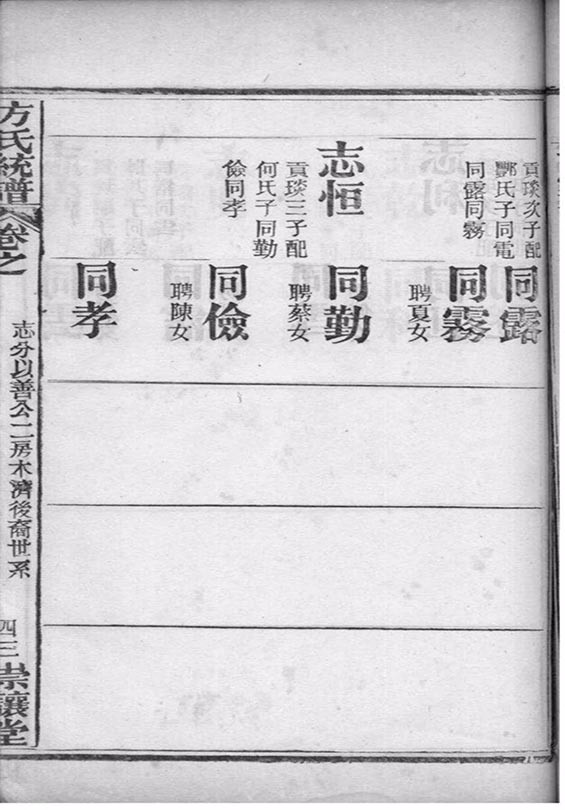 貢琰次子配
酆氏子同電
同露同霧
志恒
貢琰三子配
何氏子同勤
儉同孝
同露
同霧
聘夏女
同勤
聘蔡女
同儉
聘陳女
同孝
方氏統譜
卷之
志分以善公二房木濟後裔世系
四三
崇讓堂